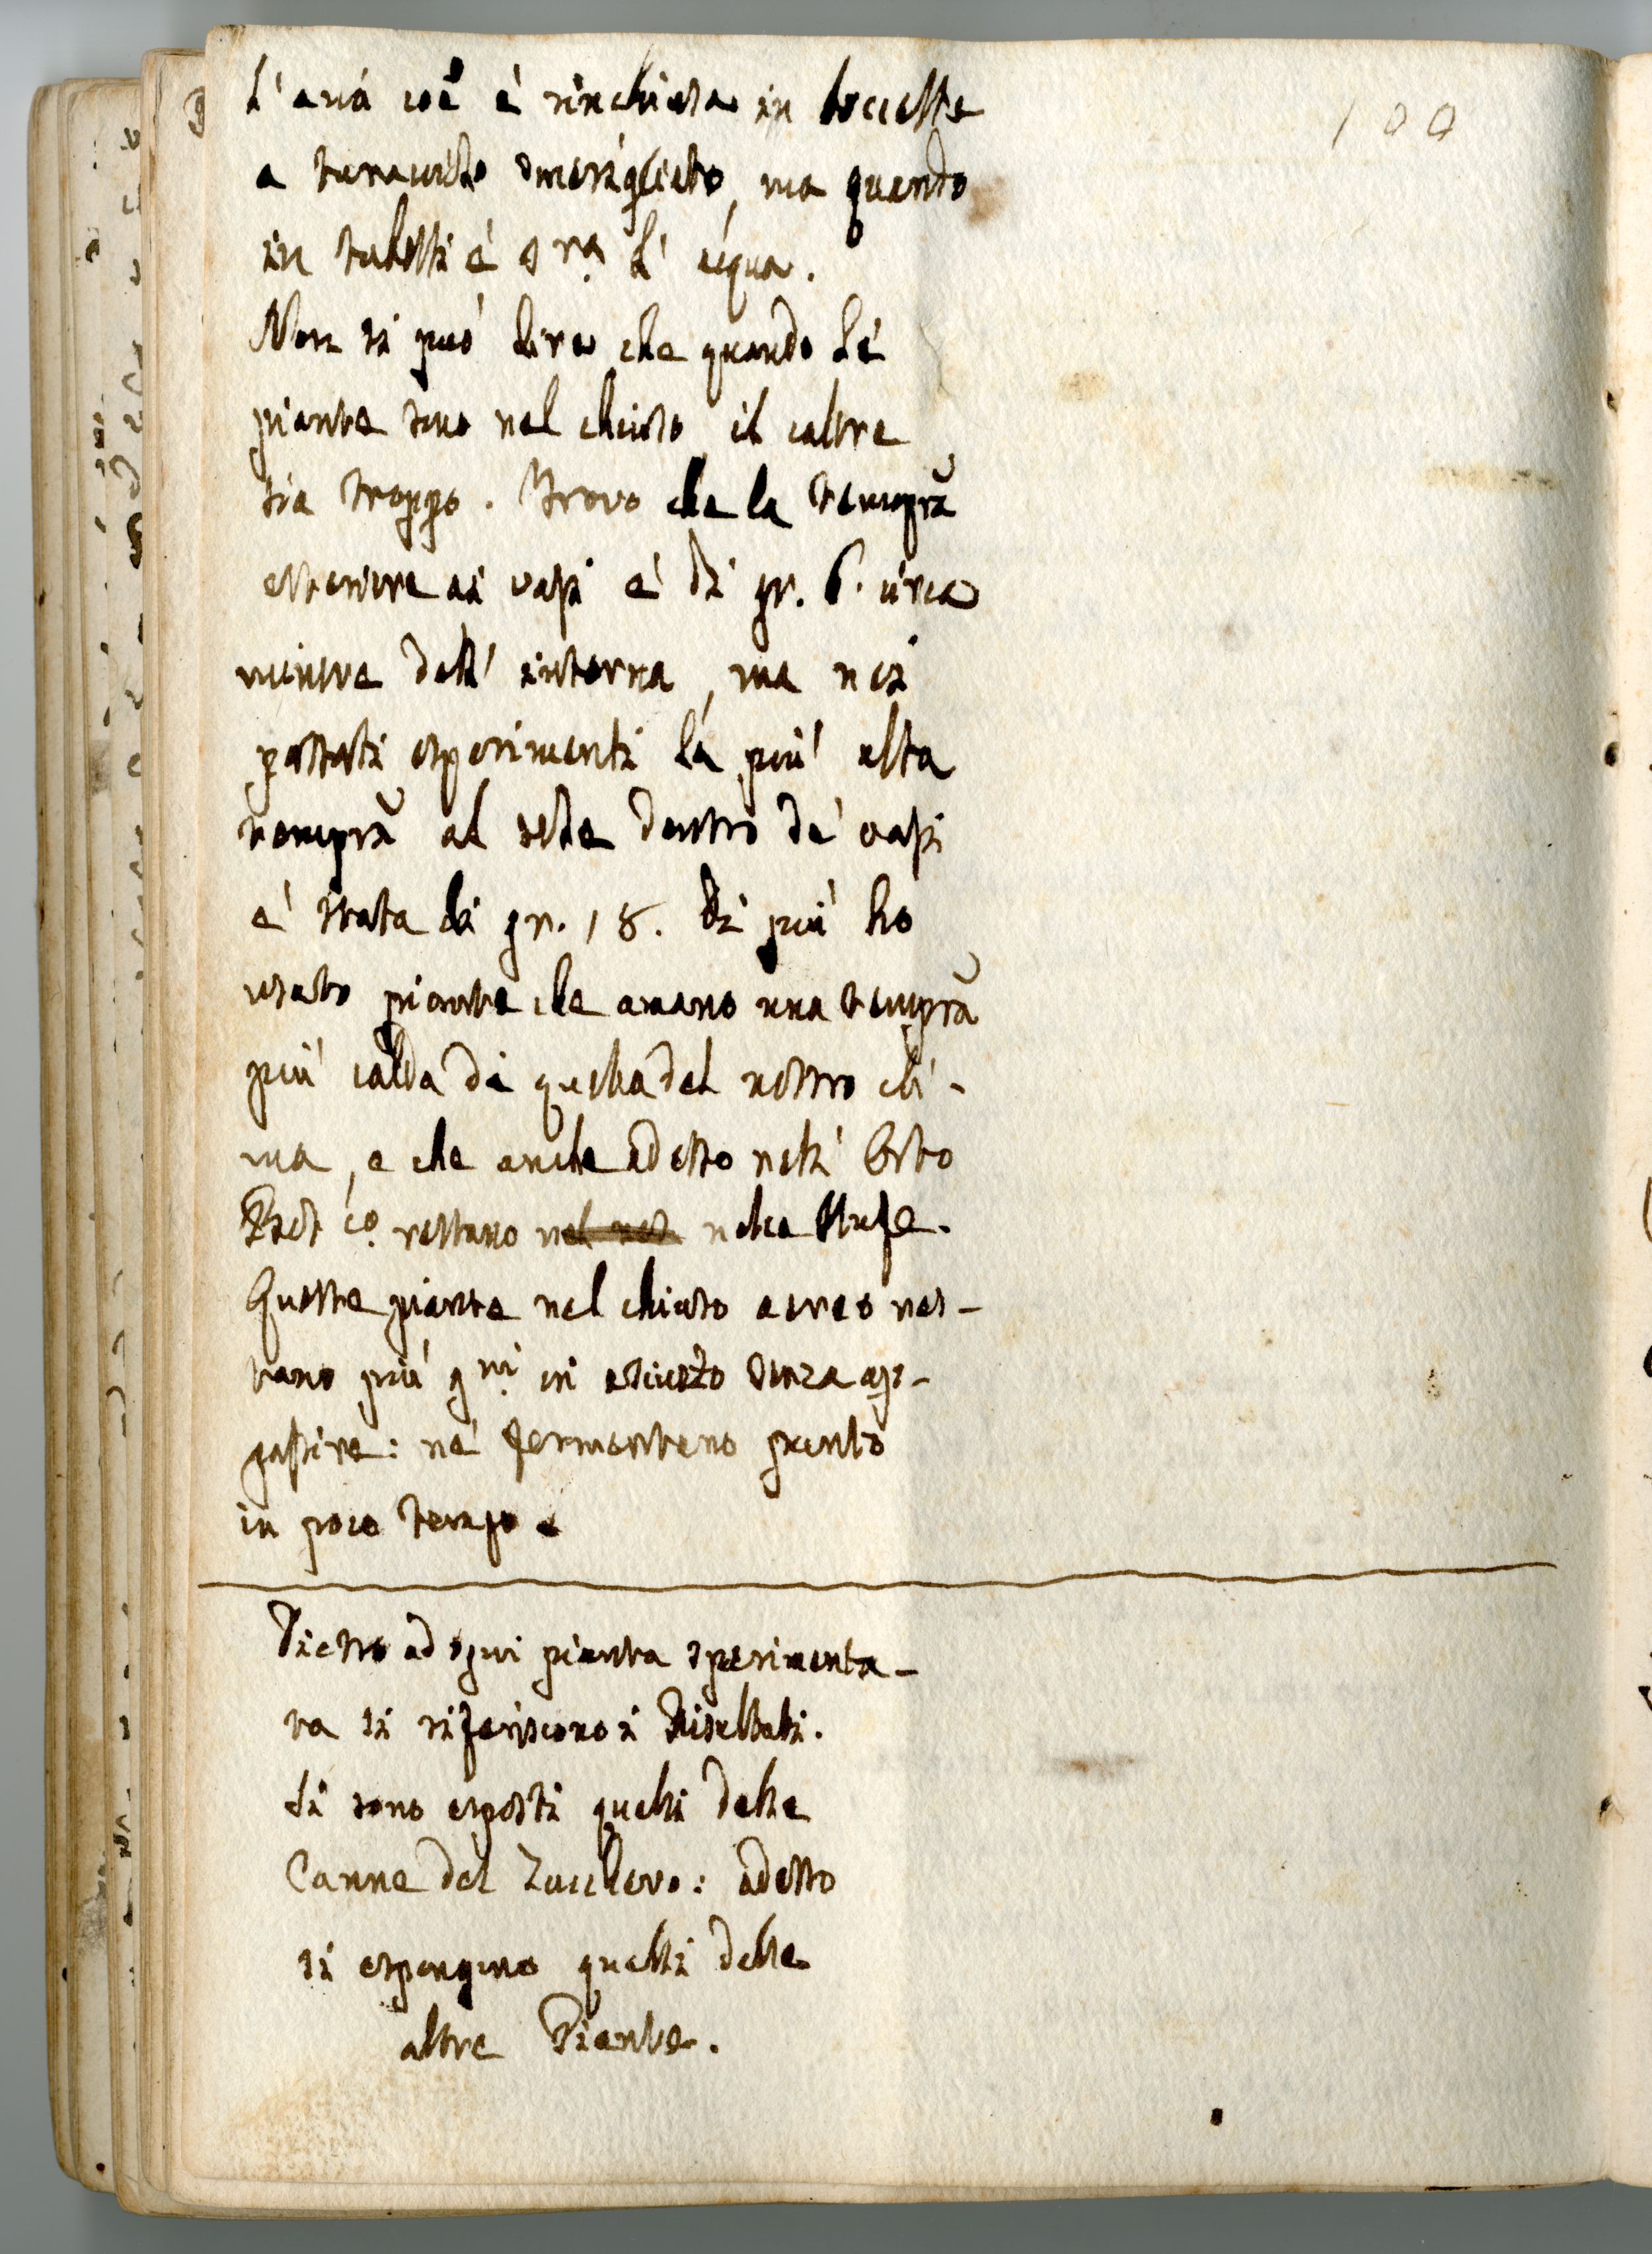 100
L'aria così è rinchiusa in boccette
a turaciolo smerigliato, ma quando
in tubetti è s.ra l'acqua.
Non si può dire che quando le
piante sono nel chiuso il calore
sia troppo. Trovo che la temprã
esteriore ai vasi è di gr. 6. circa
minore dell'interna, ma nei
passati esperimenti la più alta
temprã al sole dentro de' vasi
è stata di gr. 18. Di più ho
usato piante che amano una temprã
più calda di quella del nostro cli-
ma, e che anche adesso nell'Orto
Bot.co restano nella stufe.
Queste piante nel chiuso aereo res-
tano più g.ni in asciutto senza ap-
passire: nè fermentano punto
in poco tempo.
Dietro ad ogni pianta sperimenta-
ta si riferiscono i Risultati.
Si sono esposti quelli delle
Canne del Zucchero: adesso
si espongono quelli delle
altre Piante.